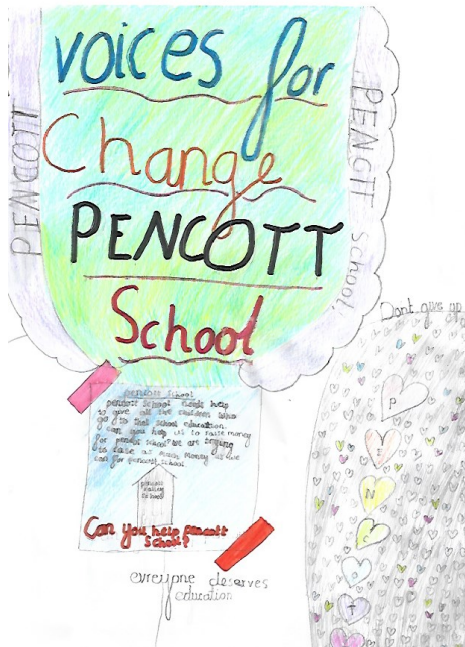 voices for
Change
PENCOTT
School
PENCOTT
PENCTT School
Dont give up
pencott School
pencott School needs help
to give all the children who
go to that school education.
can you help us to raise money
for pencott school? we are trying
to raise as much money as we
can for pencott school
pencott
valley
school
Can you help pencott
school?
evreyone deserves
education
P
E
N
C
O
T
T